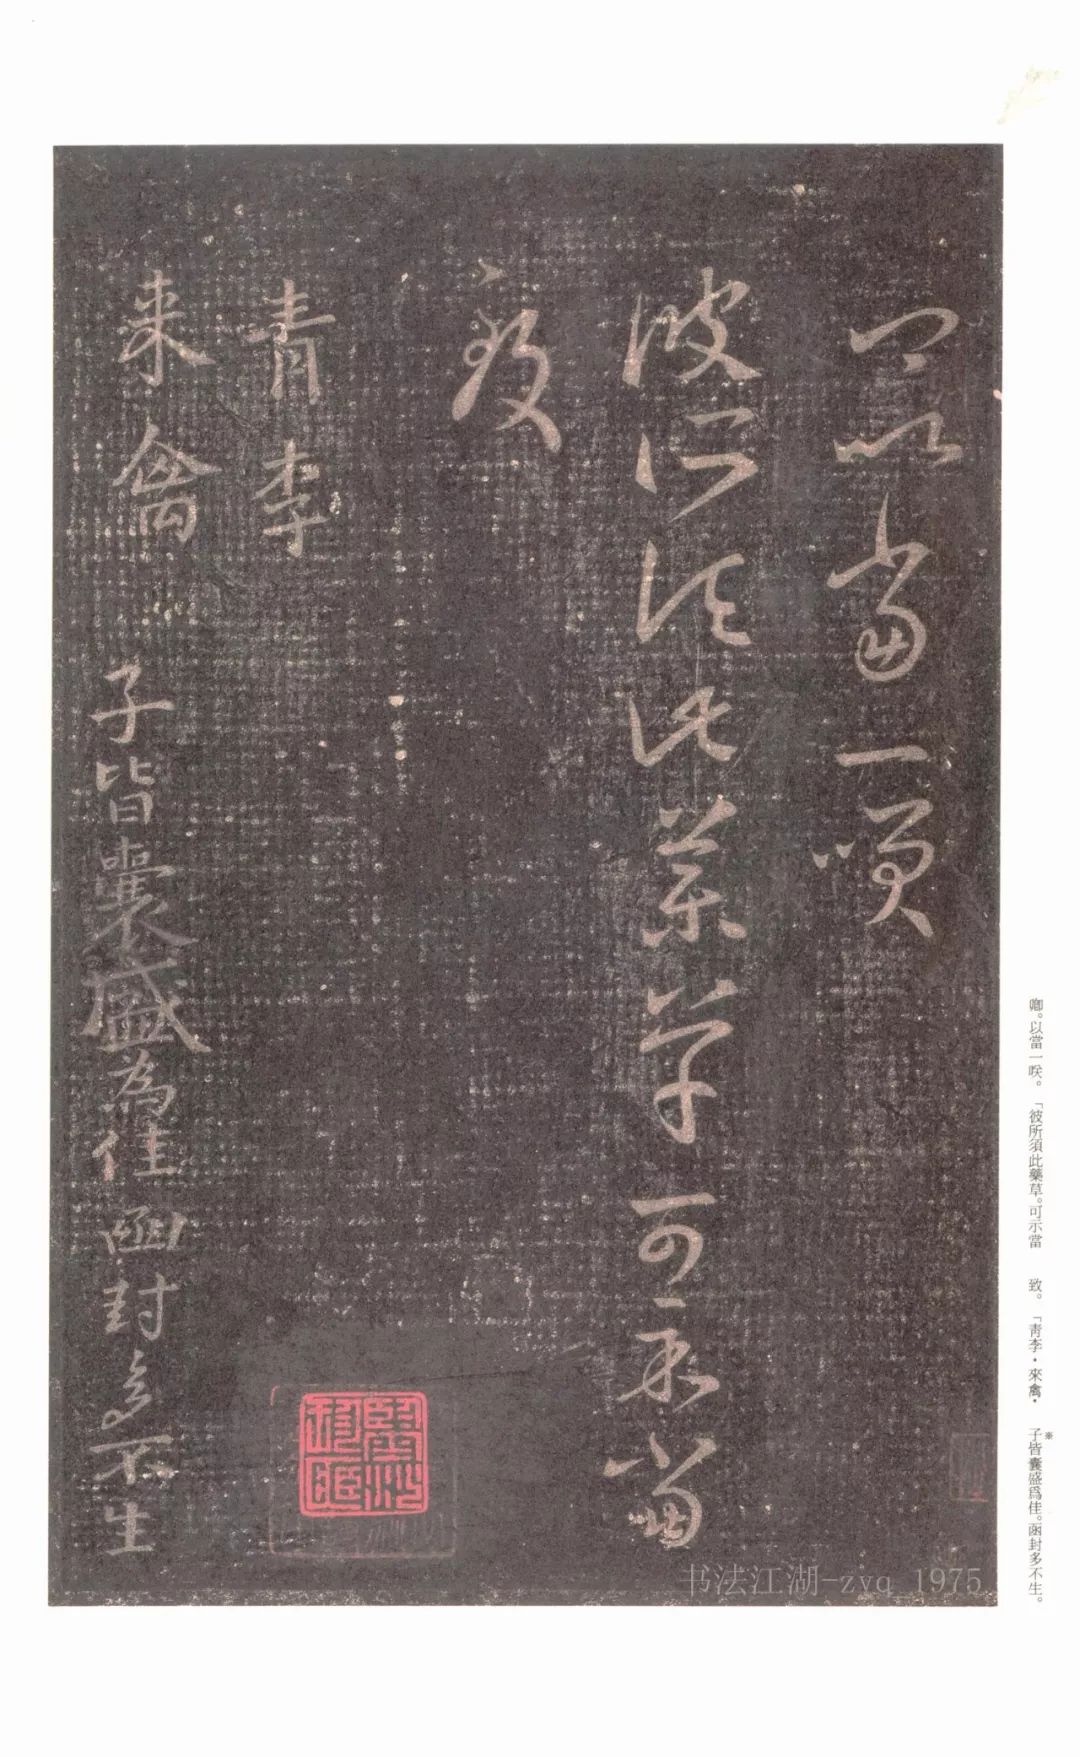 卿以當一笑
彼所須此藥草可示當
致
青李
來禽
子皆囊盛為佳函封多不生
卿。以當一咲。「彼所須此藥草。可示當 致。「青李·來禽· 子皆囊盛爲佳。函封多不生。
※
书法江湖-zyq_1975